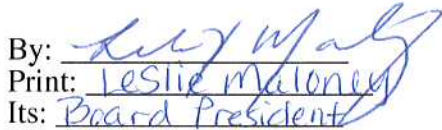 By:
Print: Leslie Maloney
Its: Board President